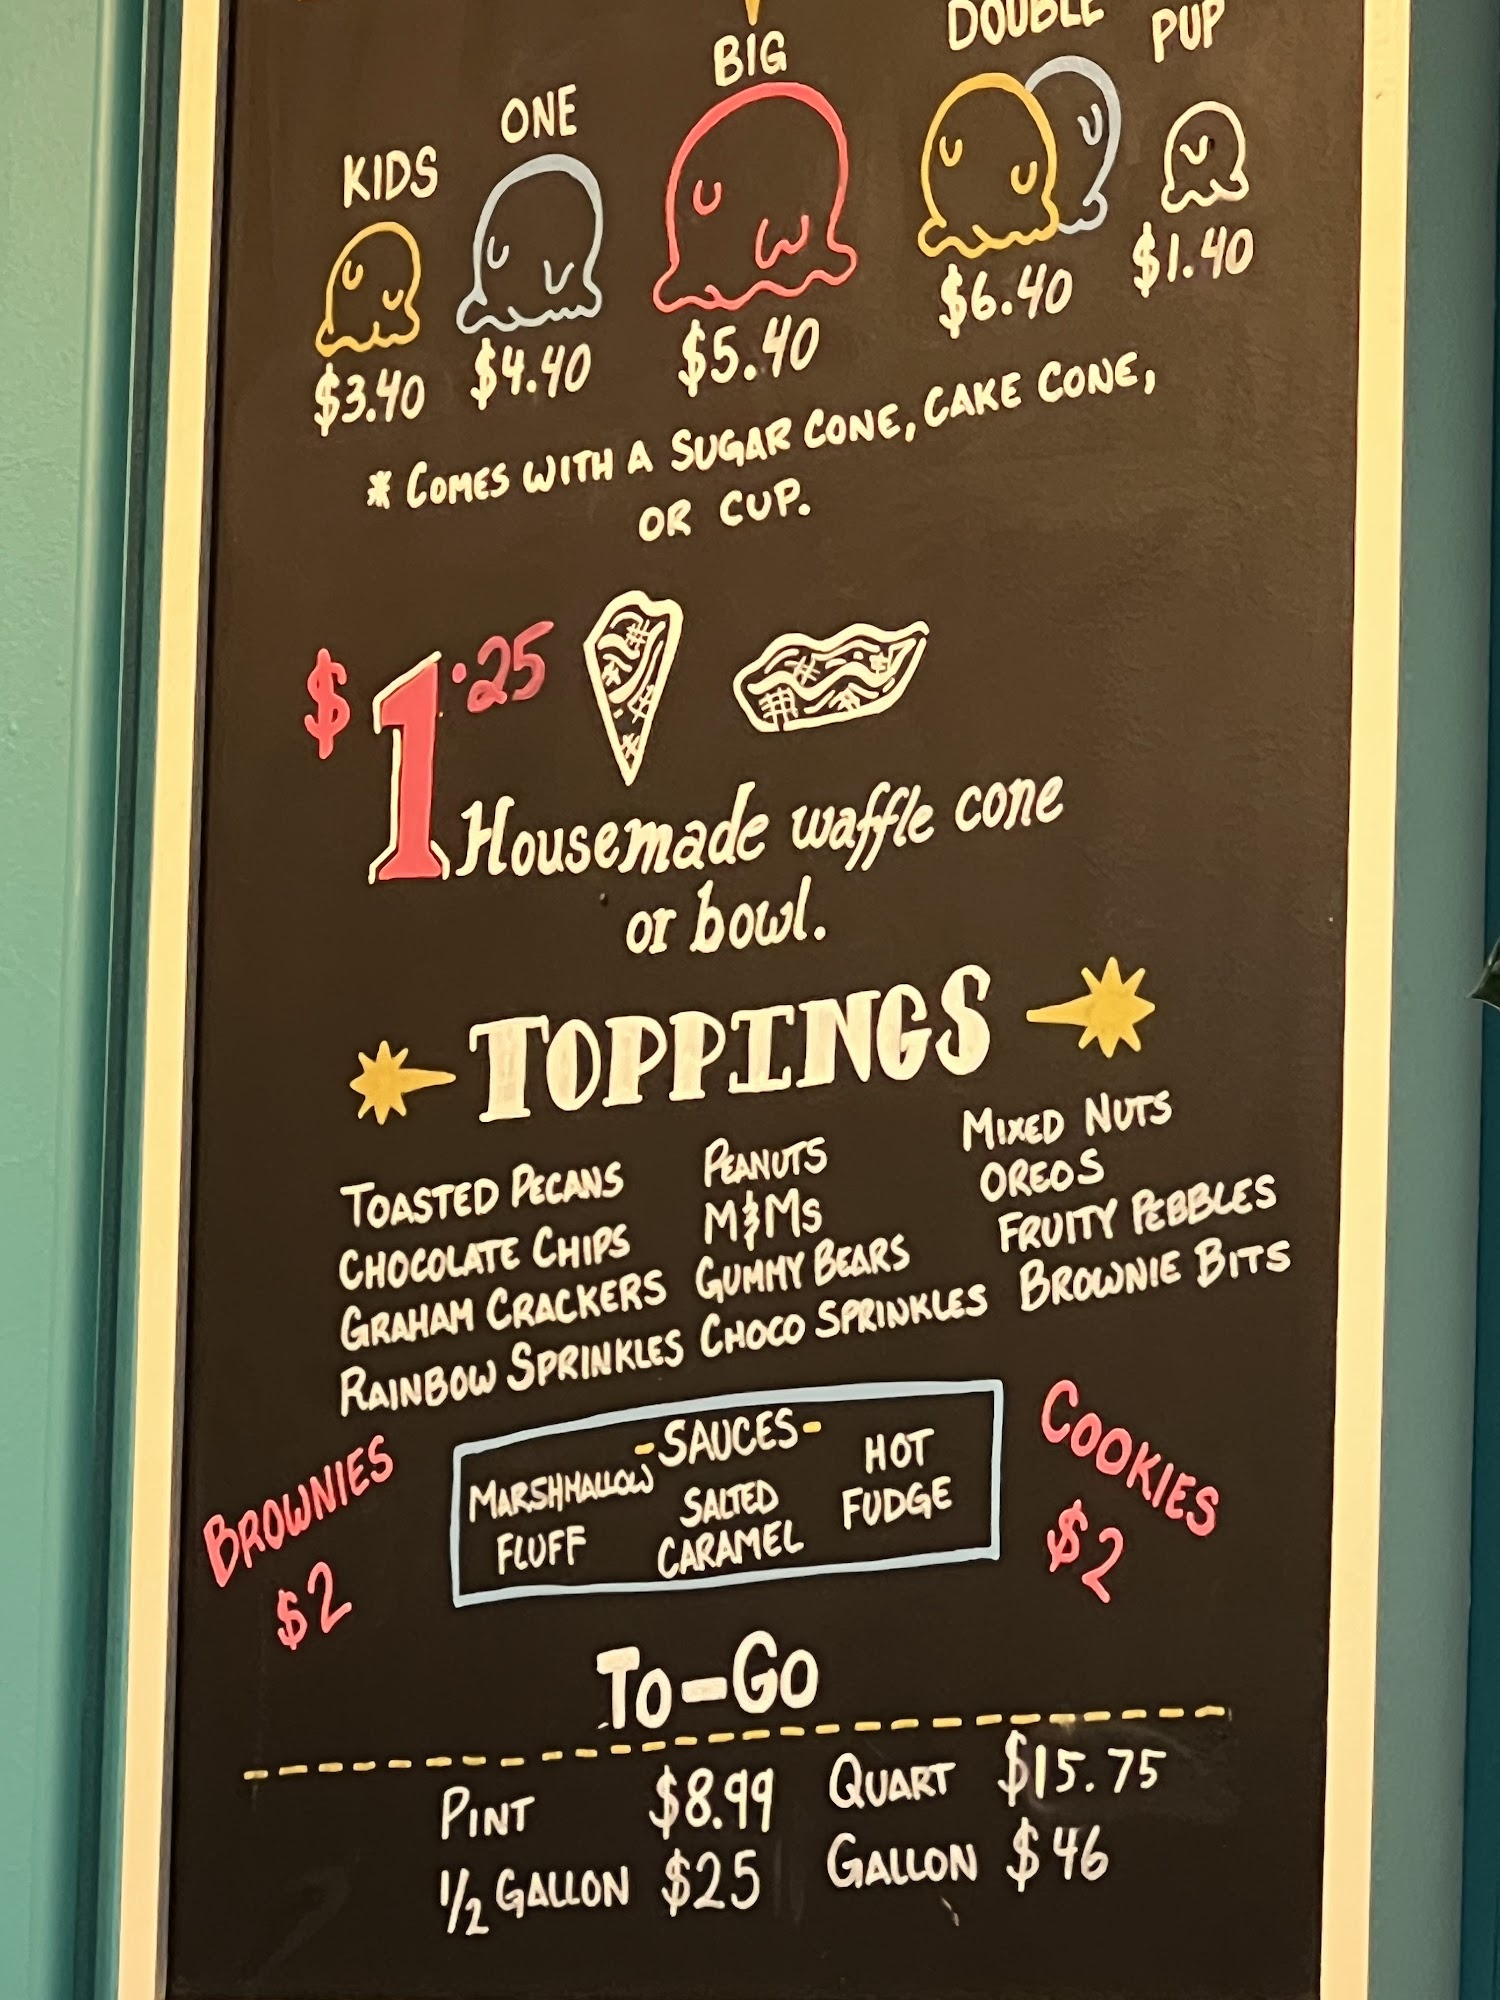 KIDS
ONE
BIG
DOUBLE
PUP
$3.40
$4.40
$5.40
$6.40
$1.40
* COMES WITH A SUGAR CONE, CAKE CONE,
OR CUP.
$1.25
Housemade waffle cone
or bowl.
TOPPINGS
TOASTED PECANS
CHOCOLATE CHIPS
GRAHAM CRACKERS
RAINBOW SPRINKLES
PEANUTS
M&MS
GUMMY BEARS
CHOCO SPRINKLES
MIXED NUTS
OREOS
FRUITY PEBBLES
BROWNIE BITS
BROWNIES
$2
-SAUCES-
MARSHMALLOW
FLUFF
SALTED
CARAMEL
HOT
FUDGE
COOKIES
$2
TO-GO
PINT $8.99 QUART $15.75
1/2 GALLON $25 GALLON $46